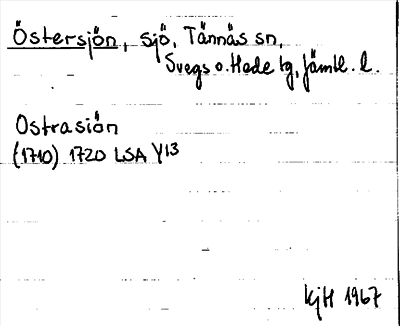 Östersjön, sjö, Tännäs sn,
Svegs o. Hede tg, Jämtl. l.
Ostrasiön
(1710) 1720 LSA Y13
kjH 1967